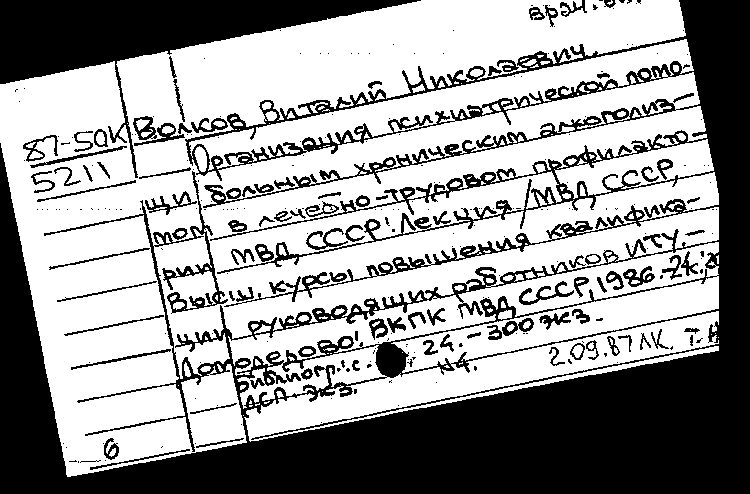 врач.
87-50К Волков, Виталий Николаевич.
5211 Организация психиатрической помо-
щи больным хроническим алкоголиз-
мом в лечебно-трудовом профилакто-
рии МВД СССР: Лекция / МВД СССР,
Высш. курсы повышения квалифика-
ции руководящих работников ИТУ. -
Домодедово: ВКПК МВД СССР, 1986. - 24с.; 20
Библиогр.: с. 24. - 300 экз.
ДСП. экз. №4. 2.09.87 ЛК. Т. Н
6